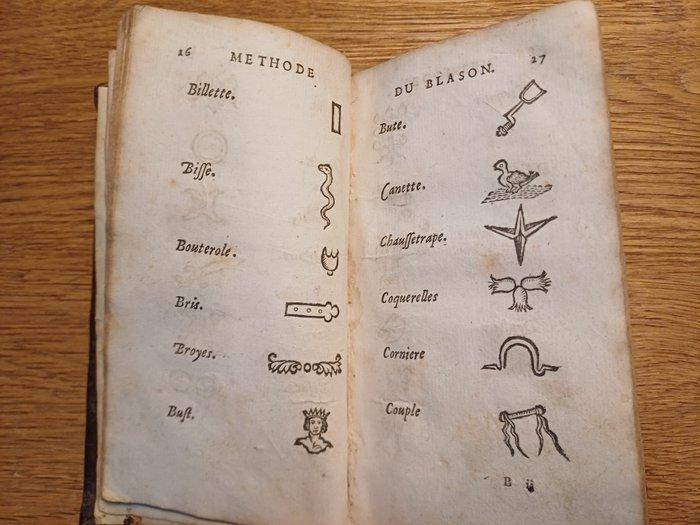 16 METHODE
Billette.
Biſſe.
Bouterole.
Bris.
Broyes.
Buſt.
DU BLASON. 27
Bute.
Canette.
Chauſſetrape.
Coquerelles
Corniere
Couple
B ij